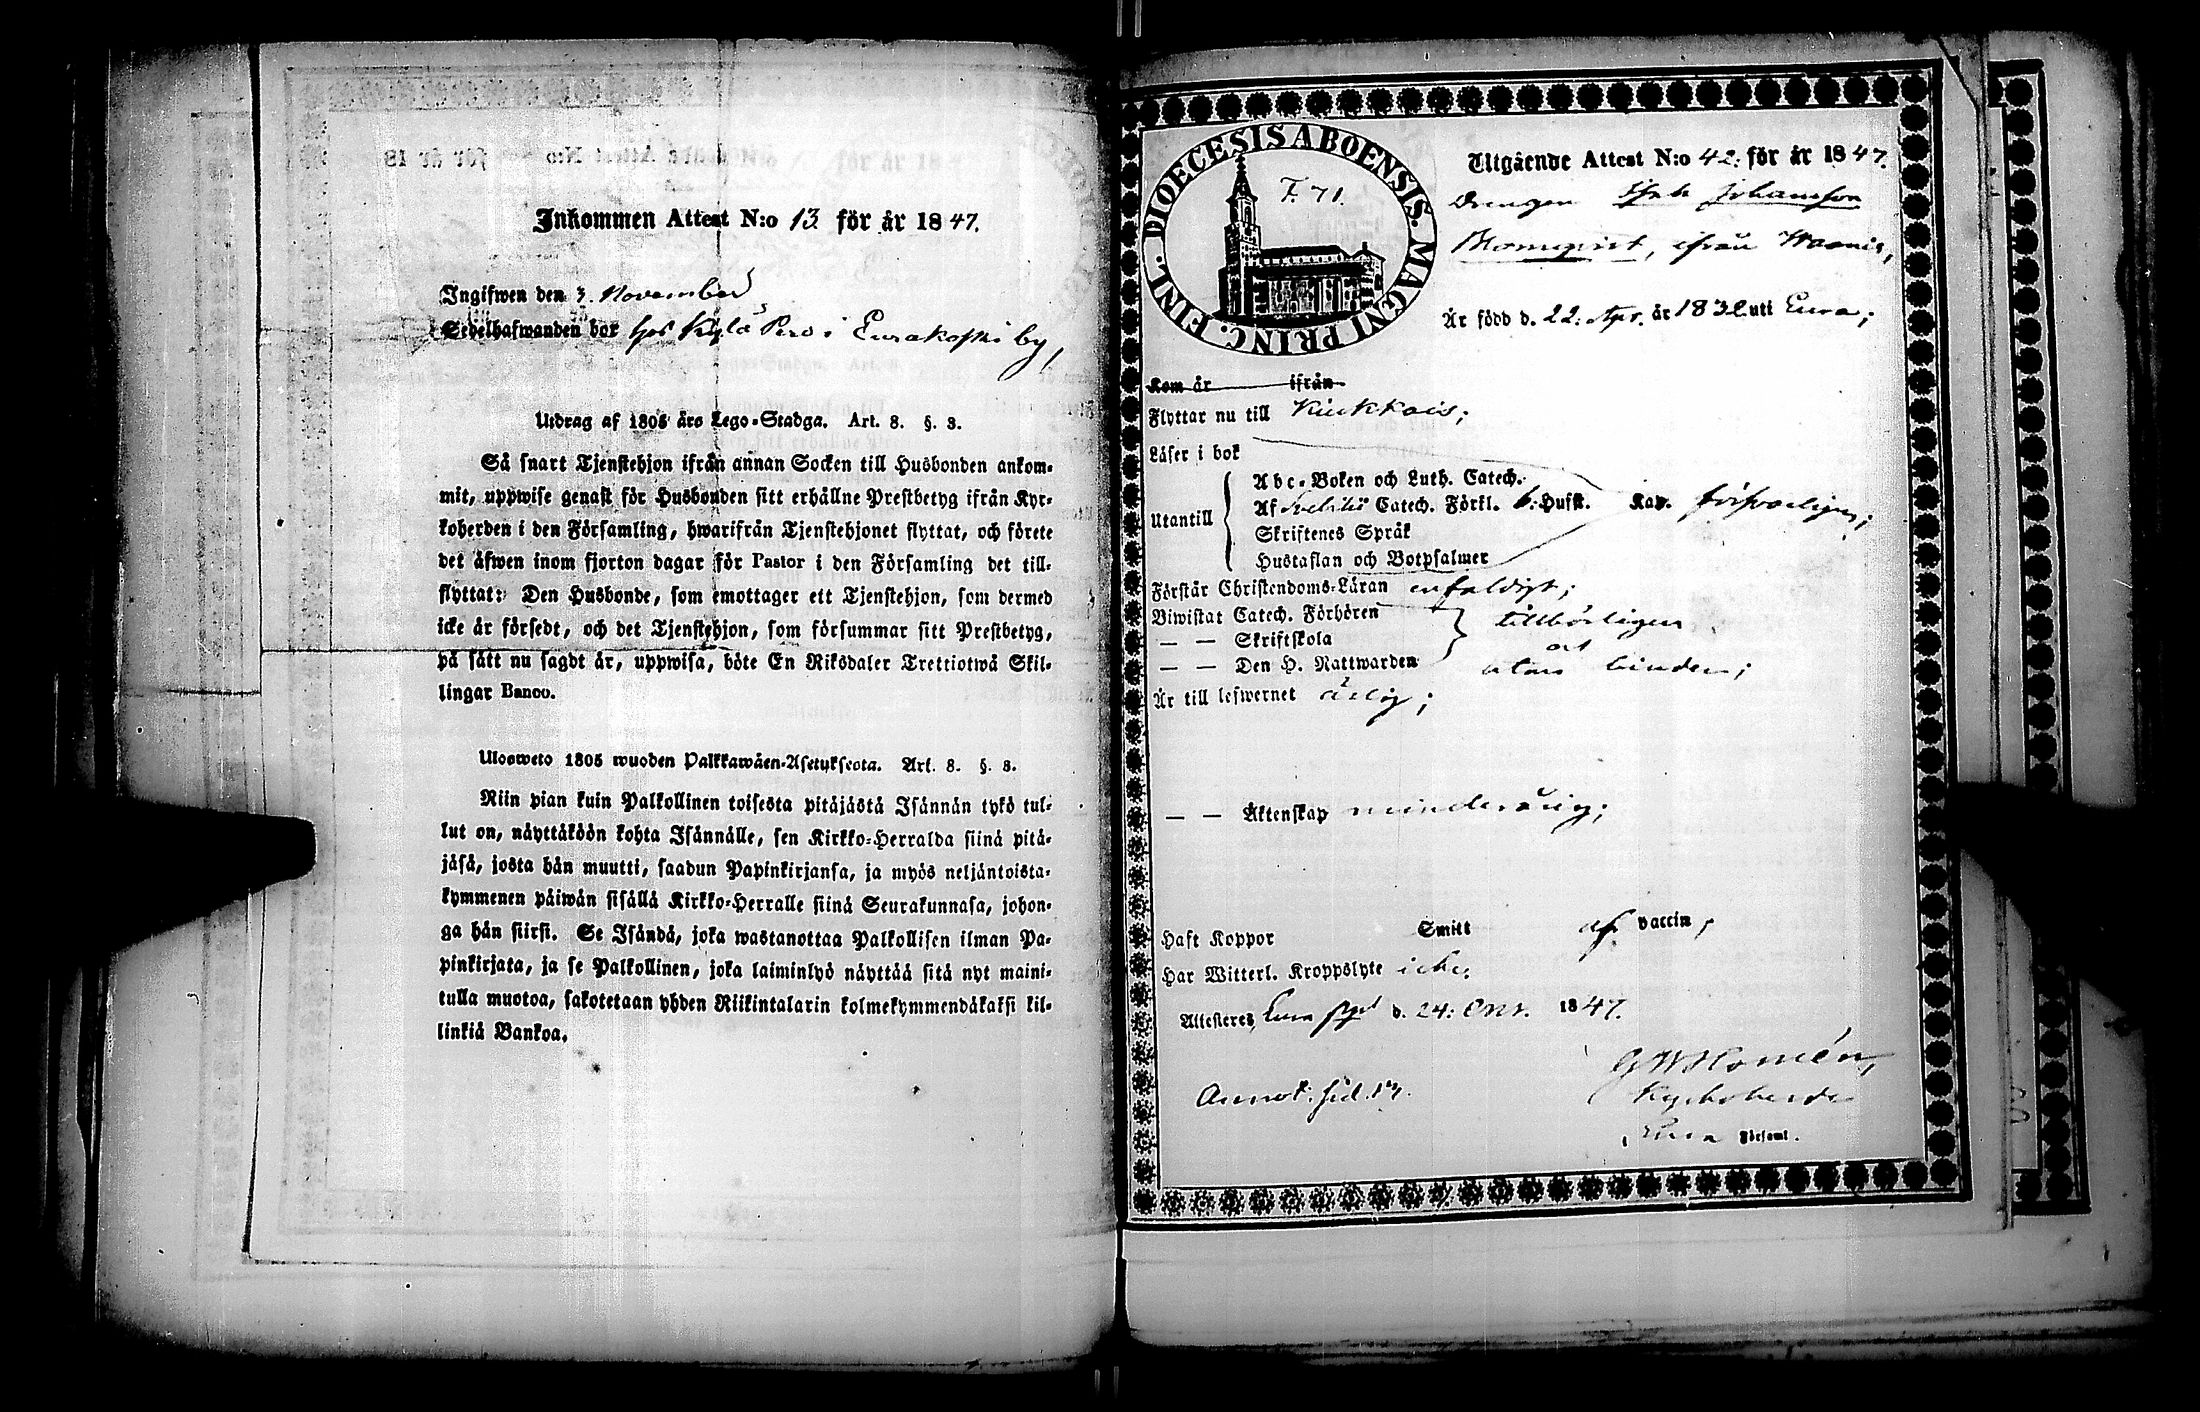 Inkommen Attest N:o 13 för år 1847.
Ingifwen den 3. November
Sedelhafwanden bor hos Kylä Pero i Eurakoski by,
Utdrag af 1805 års Lego-Stadga. Art. 8. §. 3.
Så snart Tjenstehjon ifrån annan Socken till Husbonden ankom-
mit, uppwise genast för Husbonden sitt erhållne Prestbetyg ifrån Kyr-
koherden i den Församling, hwarifrån Tjenstehjonet flyttat, och förete
det äfwen inom fjorton dagar för Pastor i den Församling det till-
flyttat: Den Husbonde, som emottager ett Tjenstehjon, som dermed
icke är försedt, och det Tjenstehjon, som försummar sitt Prestbetyg,
på sätt nu sagdt är, uppwisa, böte En Riksdaler Trettiotwå Skil-
lingar Banco.
Ulosweto 1805 wuoden Palkkawäen-Asetuksesta. Art. 8. §. 3.
Niin pian kuin Palkollinen toisesta pitäjästä Isännän tykö tul-
lut on, näyttäköön kohta Isännälle, sen Kirkko-Herralda siinä pitä-
jäsä, josta hän muutti, saadun Papinkirjansa, ja myös neljäntoista-
kymmenen päiwän sisällä Kirkko-Herralle siinä Seurakunnasa, johon-
ga hän siirsi. Se Isändä, joka wastanottaa Palkollisen ilman Pa-
pinkirjata, ja se Palkollinen, joka laiminlyö näyttää sitä nyt maini-
tulla muotoa, sakotetaan yhden Riikintalarin kolmekymmendäkaksi kil-
linkiä Bankoa.
DIOECESIS ABOENSIS. MAGNI PRINC. FINL.
F. 71.
Utgående Attest N:o 42: för år 1847.
Drengen Isak Johansson
Blomqvist, ifrån Waanis,
Är född d. 22: Apr. år 1832 uti Eura;
Kom år ifrån
Flyttar nu till Kiukkais;
Läser i bok
Utantill
Abc-Boken och Luth. Catech.
Af Svebilii Catech. Förkl. 6: Hufst. Kap. försvarligen;
Skriftenes Språk
Hustaflan och Botpsalmer
Förstår Christendoms-Läran enfaldigt;
Biwistat Catech. Förhören
— — Skriftskola
— — Den H. Nattwarden
tillbörligen
och
utan hinder;
Är till lefwernet ärlig;
— — Äktenskap minderårig;
Haft Koppor Smitt af vaccin,
Har Witterl. Kroppslyte icke,
Attesteres, Eura d. 24: Oct. 1847.
G W Homén,
Kyrkoherde
Eura Församl.
Annot: sid.